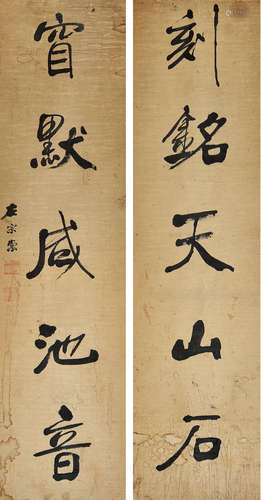 刻銘天山石
窅默咸池音
左宗棠